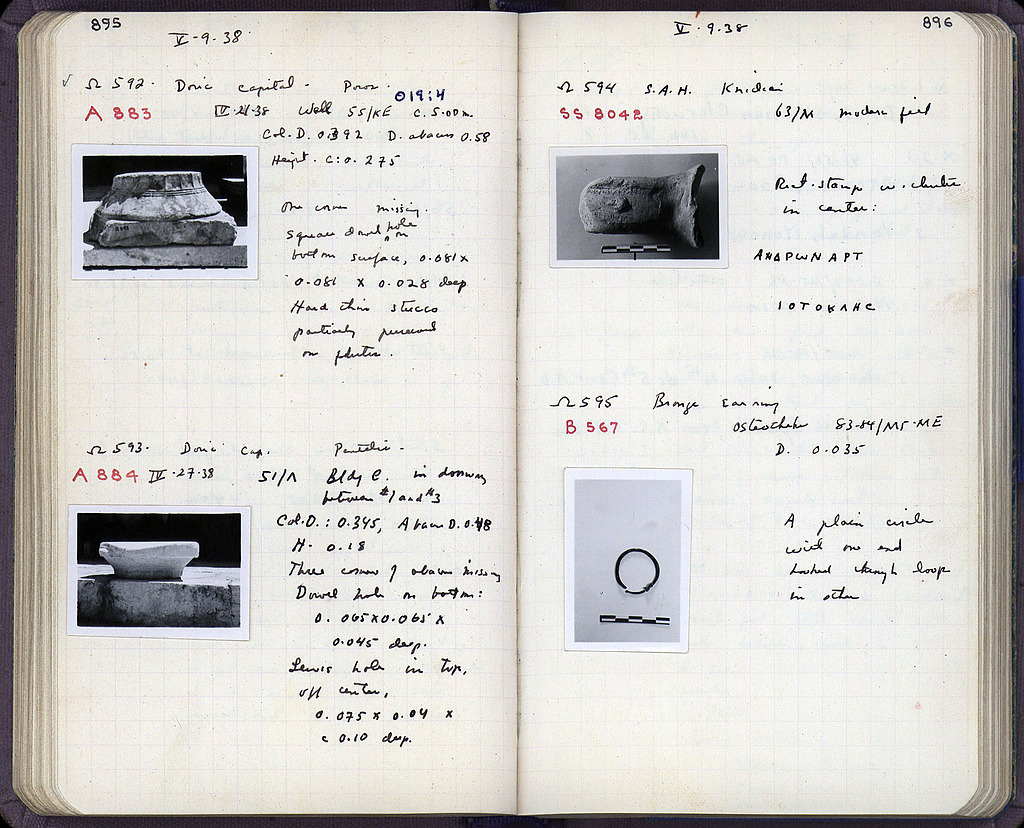 895
V-9-38
√ Ω 592. Doric capital - Poros.
O19:4
A 883 IV-21-38 Well 55/ΚΕ C. 5.00m.
Col. D. 0.392 D. abacus 0.58
Height. c: 0.275
One corner missing.
Square dowel hole on
bottom surface, 0.081 x
0.081 x 0.028 deep
Hard thin stucco
partially preserved
on flutes.
Ω 593. Doric Cap. Pentelic -
A 884 IV-27-38 51/Λ Bldg C. in doorway
between #1 and #3
Col.D.: 0.345, Abacus D. 0.48
H. 0.18
Three corners of abacus missing
Dowel hole on bottom:
0.065x0.065 x
0.045 deep.
Lewis hole in top,
off center,
0.075 x 0.04 x
c 0.10 deep.
896
V-9-38
Ω 594 S.A.H. Knidian
SS 8042 63/Μ modern fill
Rect. stamp w. cluster
in center:
ΑΝΔΡΩΝ ΑΡΤ
ΙΟΤΟΚΛΗC
Ω 595 Bronze earring
B 567 Osteotheke 83-84/ΜΓ-ΜΕ
D. 0.035
A plain circle
with one end
hooked through loop
in other